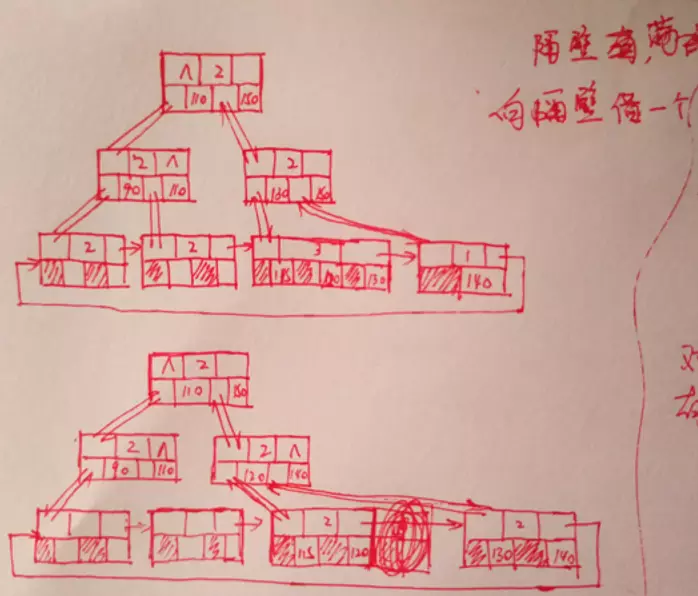 隔壁有,
向隔壁借一个
Λ 2
110 150
2 Λ
90 110
2
130 150
2
2
3
115 120 130
1
140
Λ 2
110 150
2 Λ
90 110
2 Λ
120 140
1
2
115 120
2
130 140
对